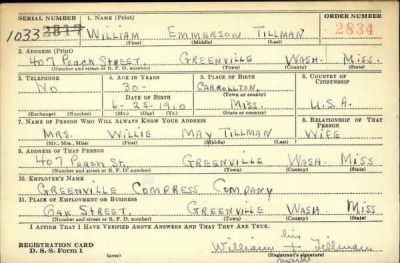 SERIAL NUMBER 1. NAME (Print) ORDER NUMBER
1033 3817 WILLIAM EMMERSON TILLMAN 2834
(First) (Middle) (Last)
2. ADDRESS (Print)
407 PEACH STREET, GREENVILLE WASH. MISS.
(Number and street or R. F. D. number) (Town) (County) (State)
3. TELEPHONE 4. AGE IN YEARS 5. PLACE OF BIRTH 6. COUNTRY OF CITIZENSHIP
NO 30- CARROLLTON,
DATE OF BIRTH (Town or county)
6-23-1910 MISS. U.S.A.
(Exchange) (Number) (Mo.) (Day) (Yr.) (State or country)
7. NAME OF PERSON WHO WILL ALWAYS KNOW YOUR ADDRESS 8. RELATIONSHIP OF THAT PERSON
MRS. WILLIE MAY TILLMAN WIFE
(Mr., Mrs., Miss) (First) (Middle) (Last)
9. ADDRESS OF THAT PERSON
407 PEACH ST. GREENVILLE WASH. MISS
(Number and street or R. F. D. number) (Town) (County) (State)
10. EMPLOYER'S NAME
GREENVILLE COMPRESS COMPANY
11. PLACE OF EMPLOYMENT OR BUSINESS
OAK STREET, GREENVILLE WASH. MISS
(Number and street or R. F. D. number) (Town) (County) (State)
I AFFIRM THAT I HAVE VERIFIED ABOVE ANSWERS AND THAT THEY ARE TRUE.
his
William + Tillman
REGISTRATION CARD
D. S. S. Form 1 (Registrant's signature)
mark